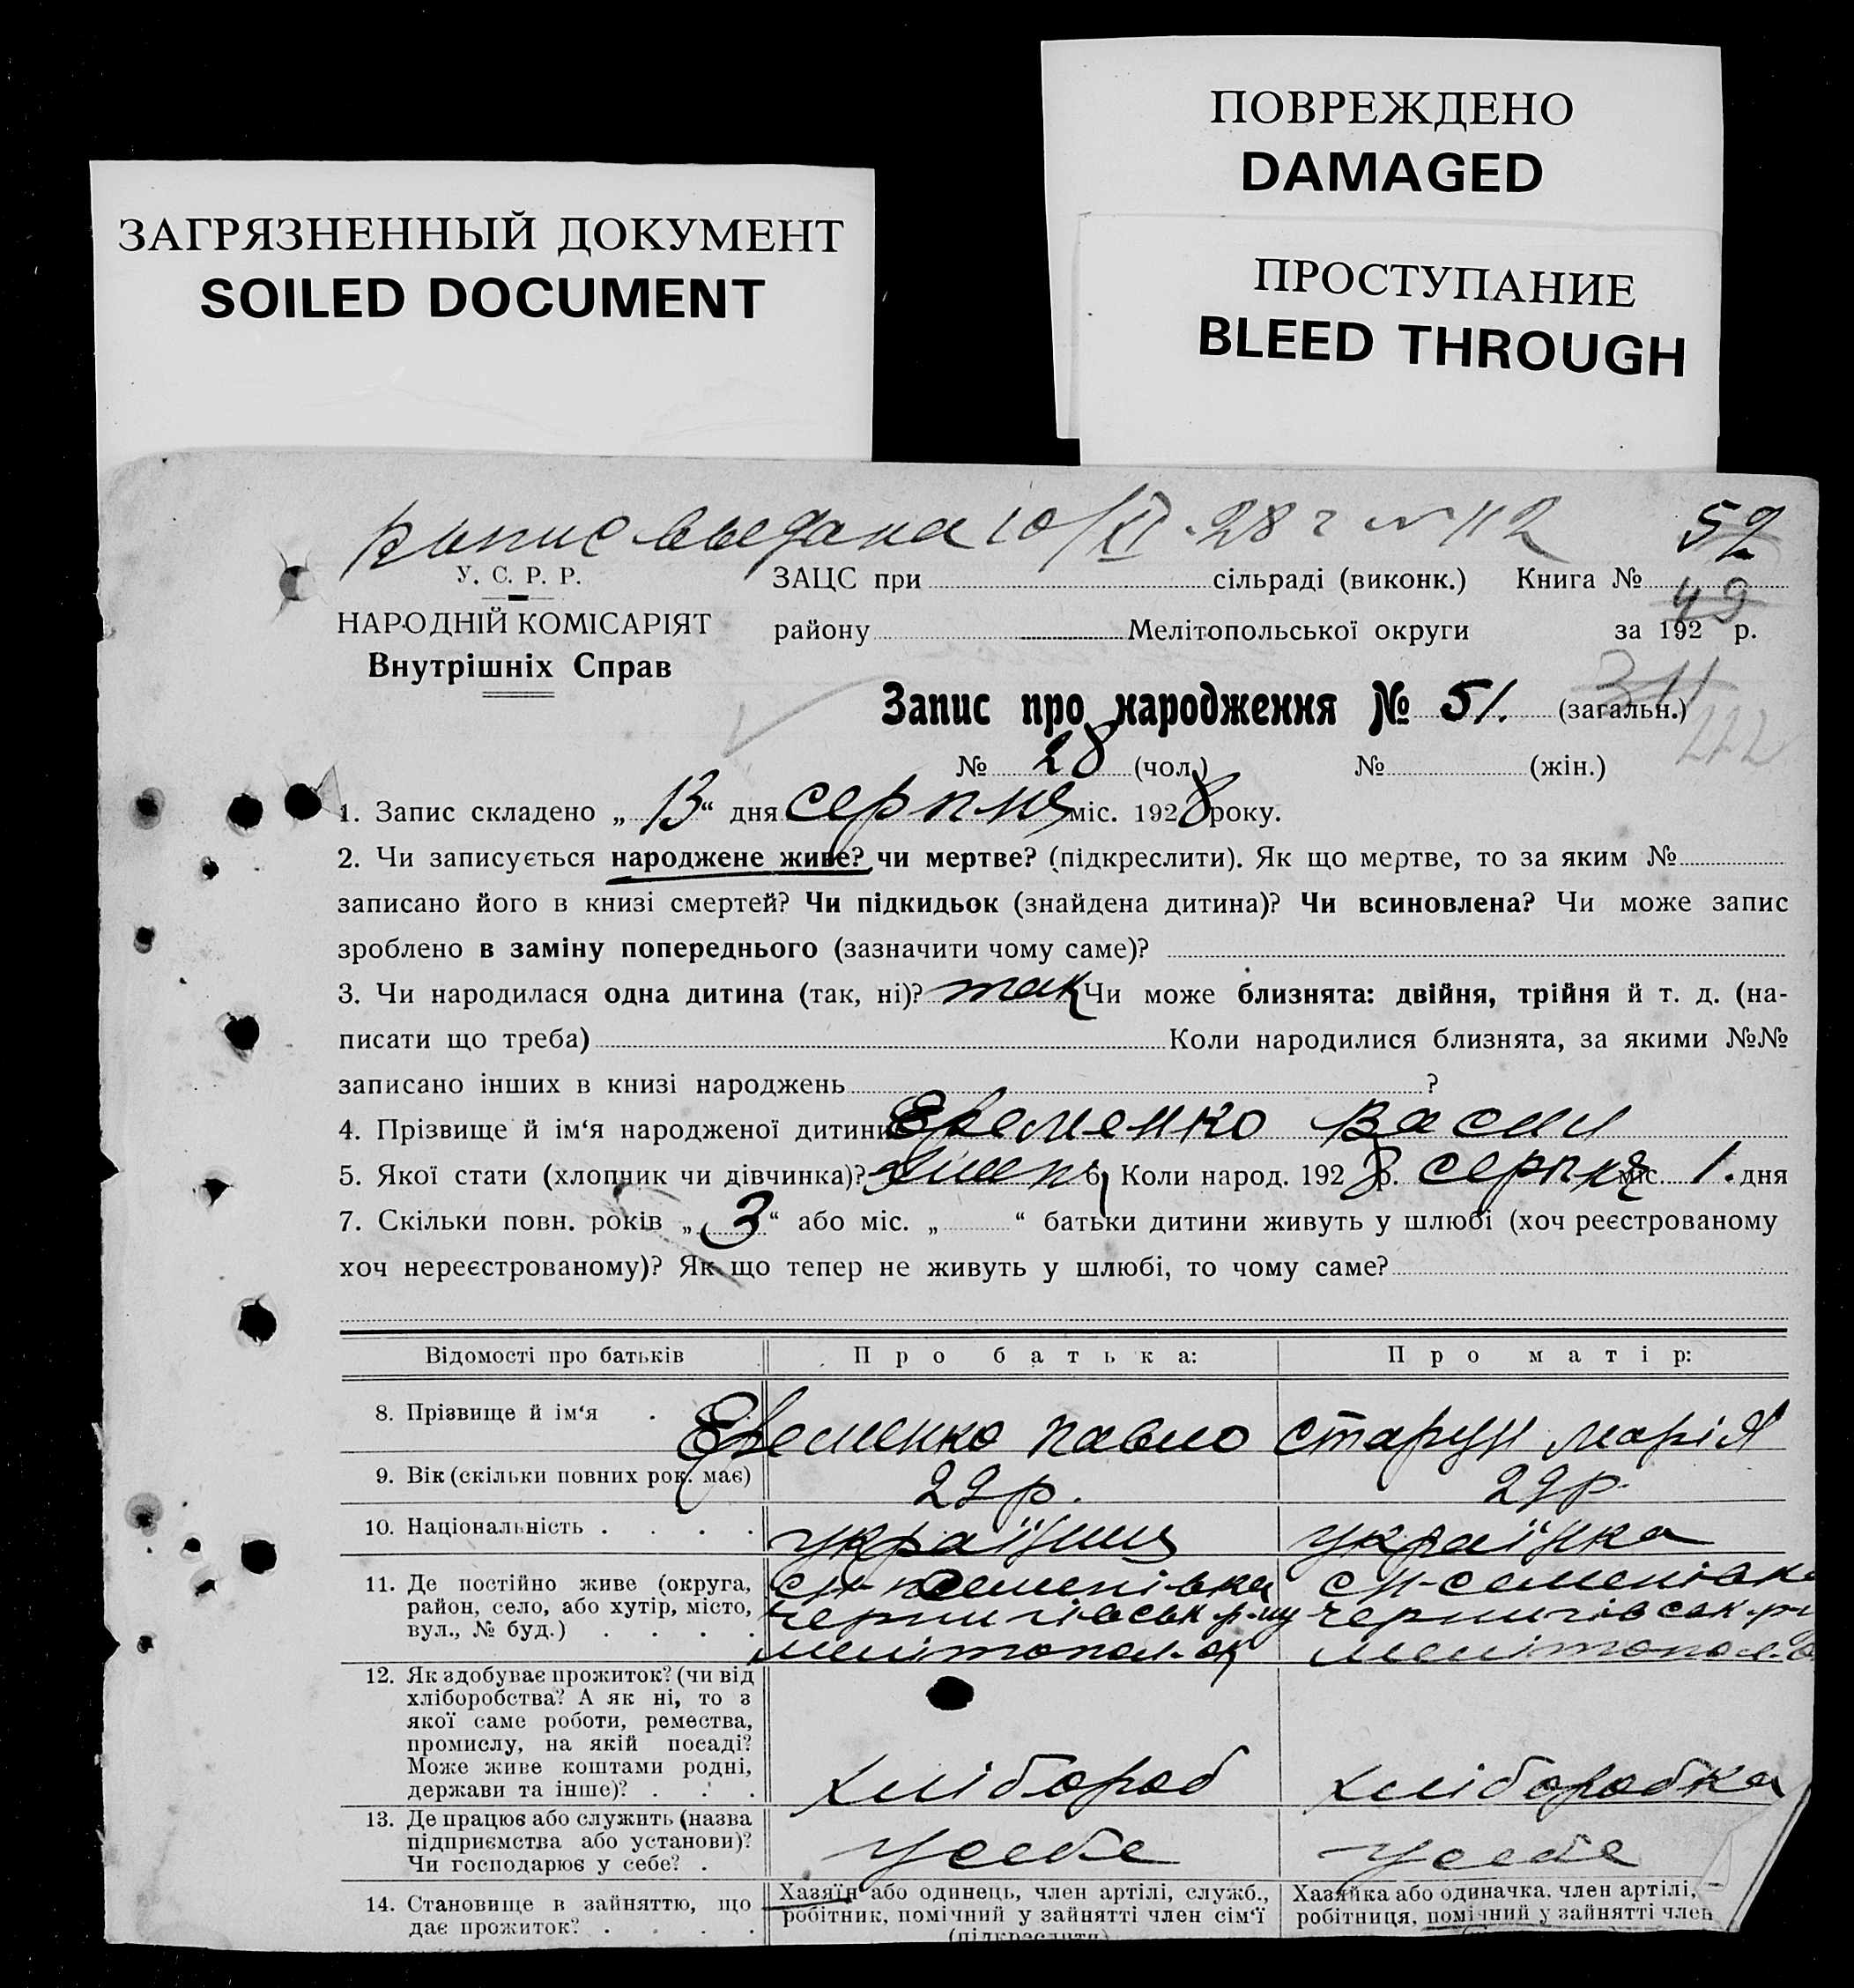 ПОВРЕЖДЕНО
DAMAGED
ЗАГРЯЗНЕННЫЙ ДОКУМЕНТ
SOILED DOCUMENT
ПРОСТУПАНИЕ
BLEED THROUGH
выдана 10/XI-28 г № 112
52
У. С. Р. Р.
ЗАЦС при сільраді (виконк.) Книга № 49
НАРОДНІЙ КОМІСАРІЯТ
району Мелітопольської округи за 192 р.
Внутрішніх Справ
311
Запис про народження № 51. (загальн.)
222
№ 28 (чол.) № (жін.)
1. Запис складено „ 13 “ дня серпня міс. 1928 року.
2. Чи записується народжене живе? чи мертве? (підкреслити). Як що мертве, то за яким №
записано його в книзі смертей? Чи підкидьок (знайдена дитина)? Чи всиновлена? Чи може запис
зроблено в заміну попереднього (зазначити чому саме)?
3. Чи народилася одна дитина (так, ні)? так Чи може близнята: двійня, трійня й т. д. (на-
писати що треба) Коли народилися близнята, за якими №№
записано інших в книзі народжень ?
4. Прізвище й ім‘я народженої дитини Еременко Васил
5. Якої стати (хлопчик чи дівчинка)? 6. Коли народ. 1928 р. серпня міс. 1. дня
7. Скільки повн. років „ 3 “ або міс. „ “ батьки дитини живуть у шлюбі (хоч реєстрованому
хоч нереєстрованому)? Як що тепер не живуть у шлюбі, то чому саме?
Відомості про батьків
Про батька:
Про матір:
8. Прізвище й ім‘я .
Еременко Павло
Старун Марія
9. Вік (скільки повних рок. має)
29 р.
29 р.
10. Національність . . . .
українец
українка
11. Де постійно живе (округа,
район, село, або хутір, місто,
вул., № буд.) . . . .
Семенівка
Чернигівськ р-ну
Мелітопол. ок
с Н-Семенівка
Чернигівськ. р-н
Мелітопол. о
12. Як здобуває прожиток? (чи від
хліборобства? А як ні, то з
якої саме роботи, ремества,
промислу, на якій посаді?
Може живе коштами родні,
держави та інше)? . . .
хлібороб
хліборобка
13. Де працює або служить (назва
підприємства або установи)?
Чи господарює у себе? .
у себе
у себе
14. Становище в зайняттю, що
дає прожиток? . . . .
Хазяїн або одинець, член артілі, служб.,
робітник, помічний у зайнятті член сім‘ї
(підкреслити)
Хазяйка або одиначка, член артілі,
робітниця, помічний у зайнятті член